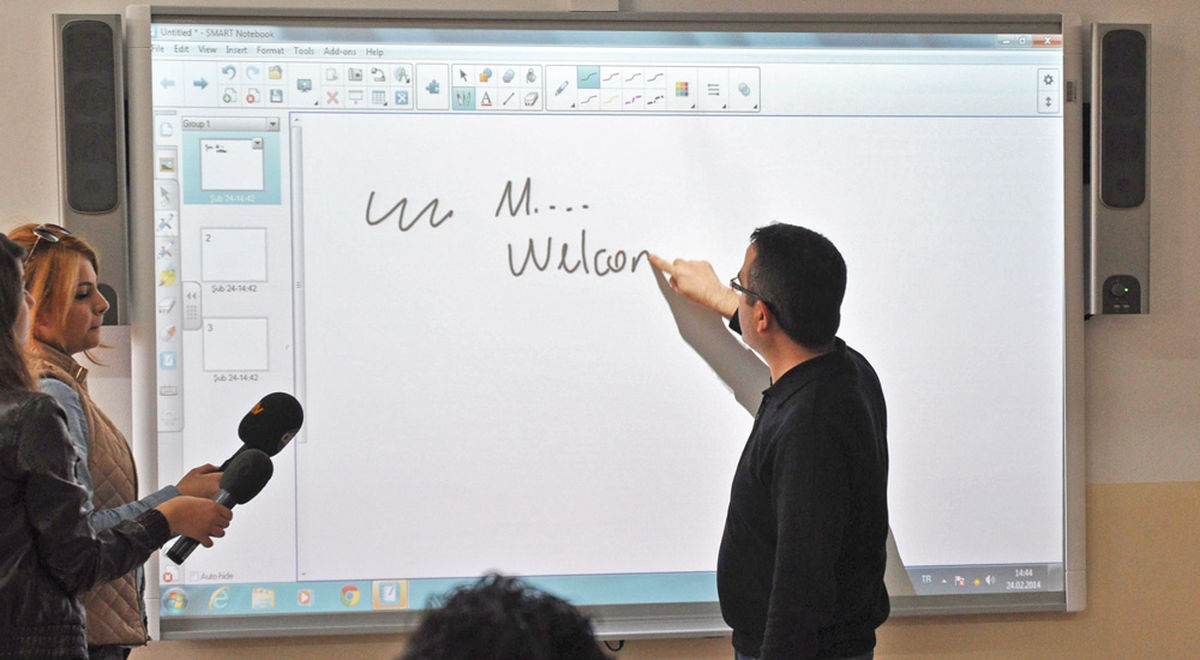 Untitled * - SMART Notebook
File Edit View Insert Format Tools Add-ons Help
Group 1
Şub 24-14:42
2
Şub 24-14:42
3
Şub 24-14:42
M....
Welcom
Auto-hide
TR
14:44
24.02.2014